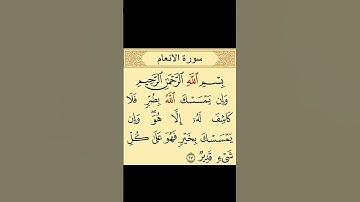 سورة الانعام
بِسْمِ اللَّهِ الرَّحْمَٰنِ الرَّحِيمِ
وَإِن يَمْسَسْكَ اللَّهُ بِضُرٍّ فَلَا
كَاشِفَ لَهُ إِلَّا هُوَ وَإِن
يَمْسَسْكَ بِخَيْرٍ فَهُوَ عَلَىٰ كُلِّ
شَيْءٍ قَدِيرٌ ١٧